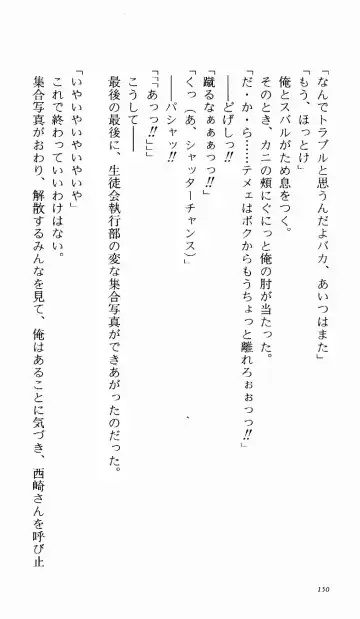 「なんでトラブルと思うんだよバカ、あいつはまた」
「もう、ほっとけ」
俺とスバルがため息をつく。
そのとき、カニの頬にぐにっと俺の肘が当たった。
「だ・か・ら……テメェはボクからもうちょっと離れろぉぉっっ!!」
――どげしっ!!
「蹴るなぁぁぁっっ!!」
「くっ（あ、シャッターチャンス）」
――パシャッ!!
「「「あっっ!!」」」
こうして――
最後の最後に、生徒会執行部の変な集合写真ができあがったのだった。
「いやいやいやいやいや」
これで終わっていいわけはない。
集合写真がおわり、解散するみんなを見て、俺はあることに気づき、西崎さんを呼び止
150